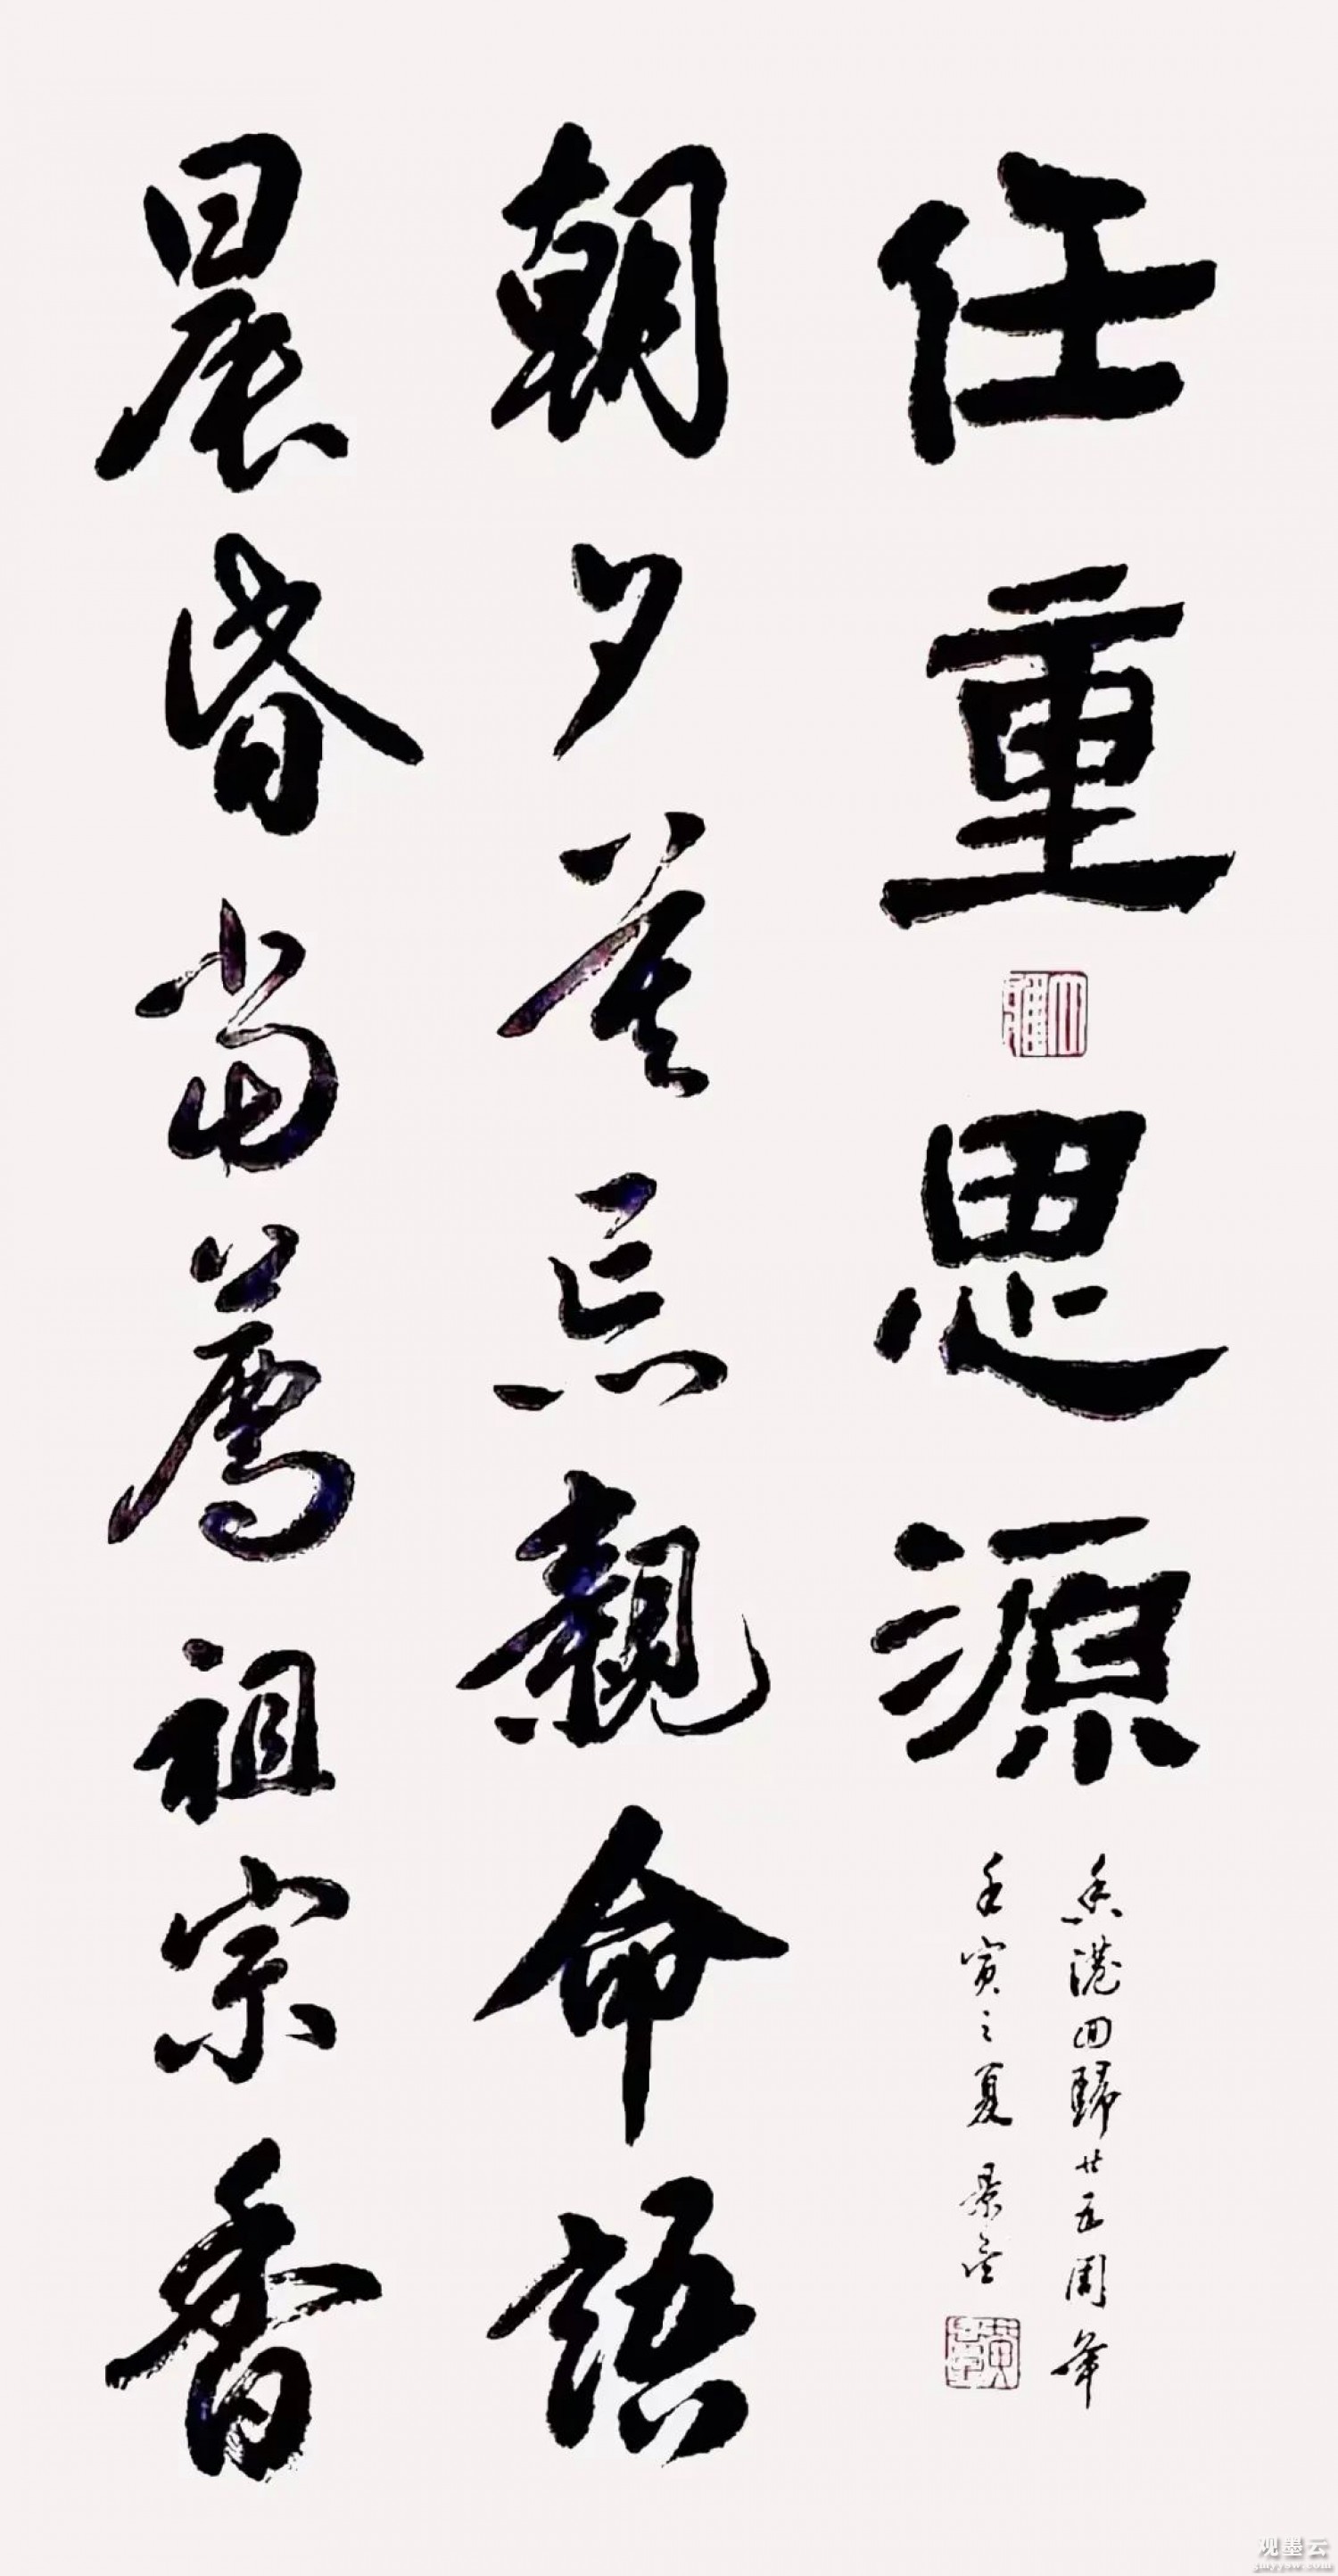 任重思源
香港回歸廿五周年
壬寅之夏 景
朝夕莫忘親命語
晨昏當薦祖宗香
观墨云